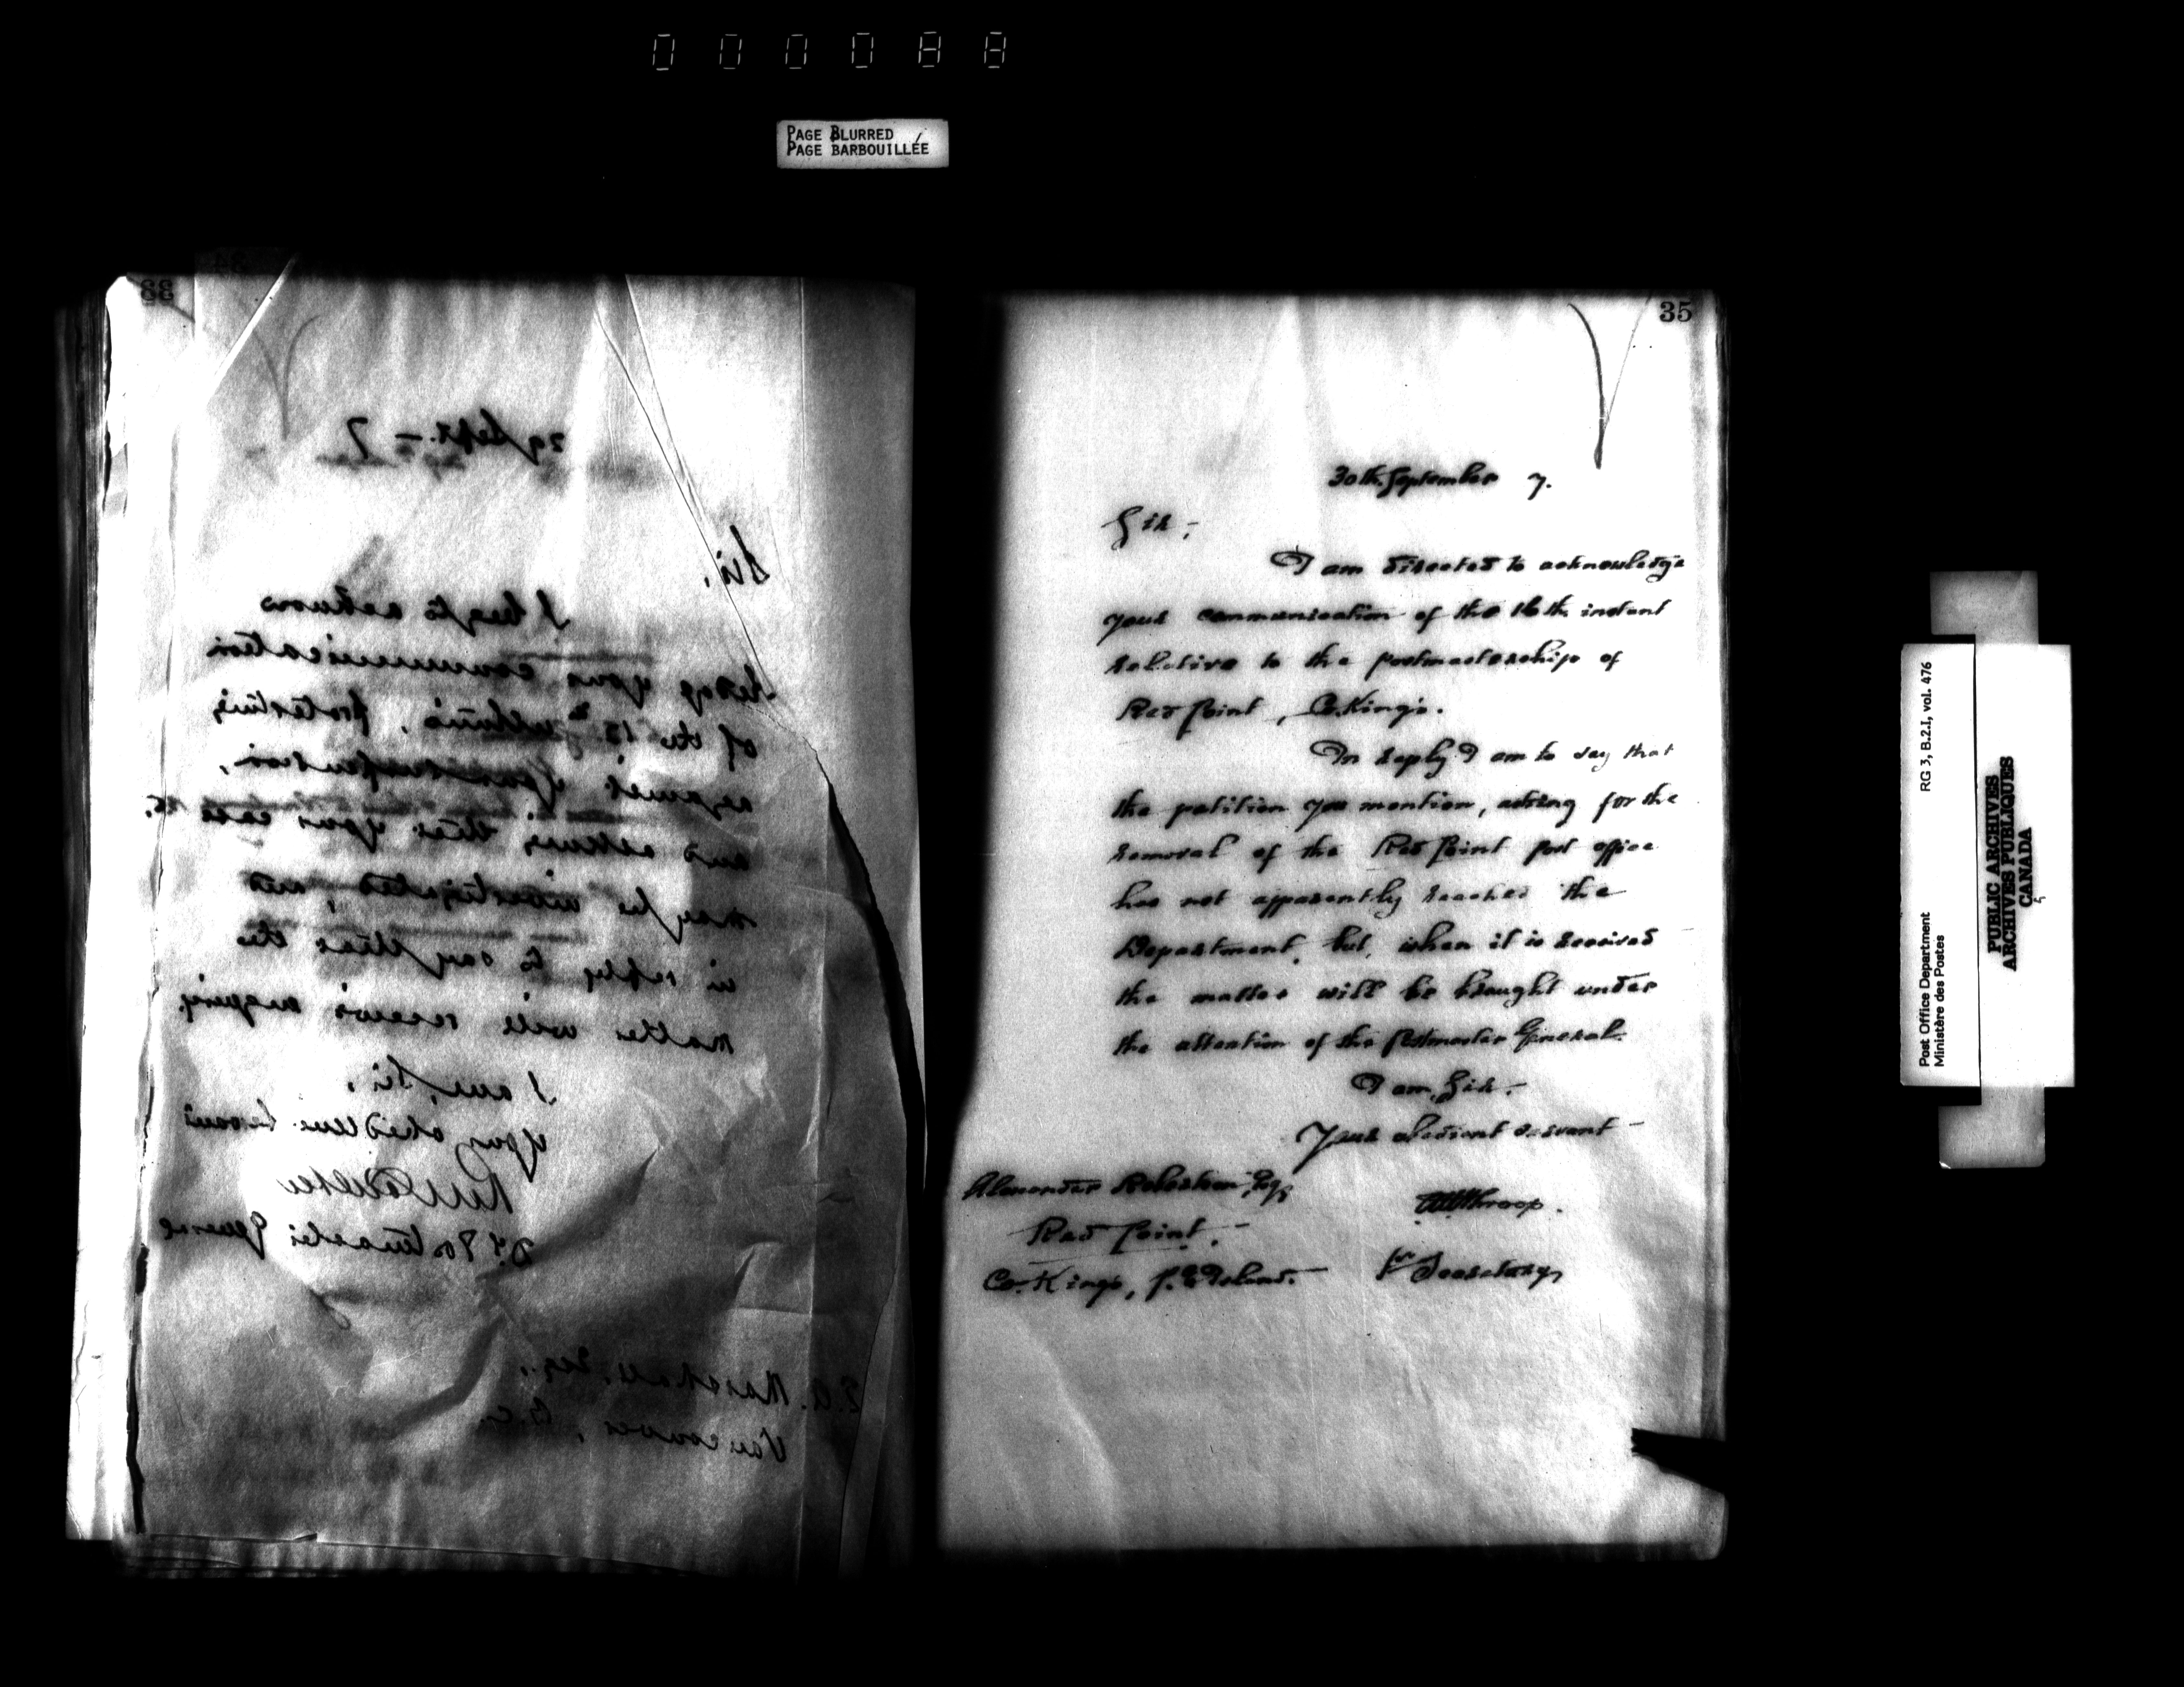 000088
PAGE BLURRED
PAGE BARBOUILLÉE
33
29 Sept. – 7
Sir,
I beg to acknow
ledge your communication
of the 15th ultimo, protesting
against your suspension,
and asking that your case
may be investigated, and
in reply to say that the
matter will receive enquiry.
I am, Sir,
Your obedient Servant
Dy. Postmaster General
Marshall, Esq.,
Vancouver, B.C.
35
30th September 7.
Sir,-
I am directed to acknowledge
your communication of the 16th instant
relative to the postmastership of
Red Point, Co. King's.
In reply I am to say that
the petition you mention, asking for the
removal of the Red Point post office
has not apparently reached the
Department, but, when it is received
the matter will be brought under
the attention of the Postmaster General.
I am, Sir,-
Your obedient servant -
Alexander Robertson, Esq,
Throop.
Red Point,-
for Secretary
Co. King's, P. E. Island.
RG 3, B.2.I, vol. 476
Post Office Department
Ministère des Postes
PUBLIC ARCHIVES
ARCHIVES PUBLIQUES
CANADA